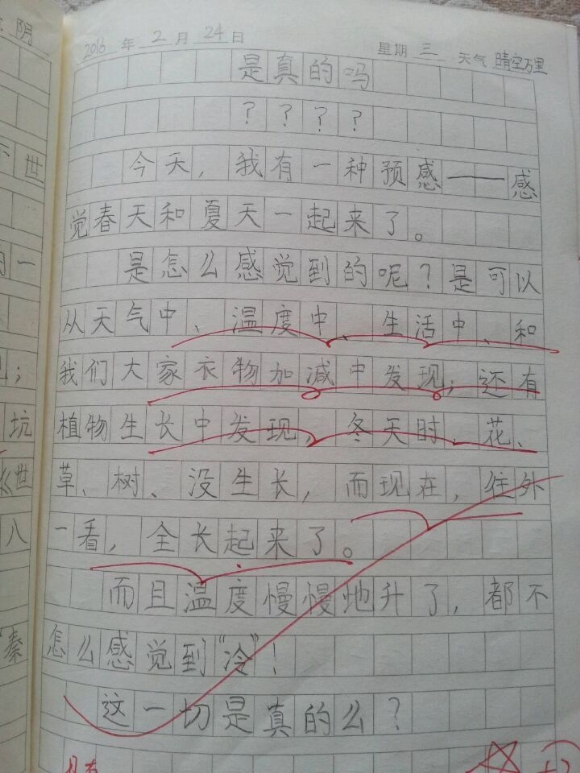 2016 年 2 月 24 日 星期 三 天气 晴空万里
是真的吗
？？？？
今天，我有一种预感——感
觉春天和夏天一起来了。
是怎么感觉到的呢？是可以
从天气中、温度中、生活中、和
我们大家衣物加减中发现；还有
植物生长中发现，冬天时，花、
草、树、没生长，而现在，往外
一看，全长起来了。
而且温度慢慢地升了，都不
怎么感觉到“冷”！
这一切是真的么？